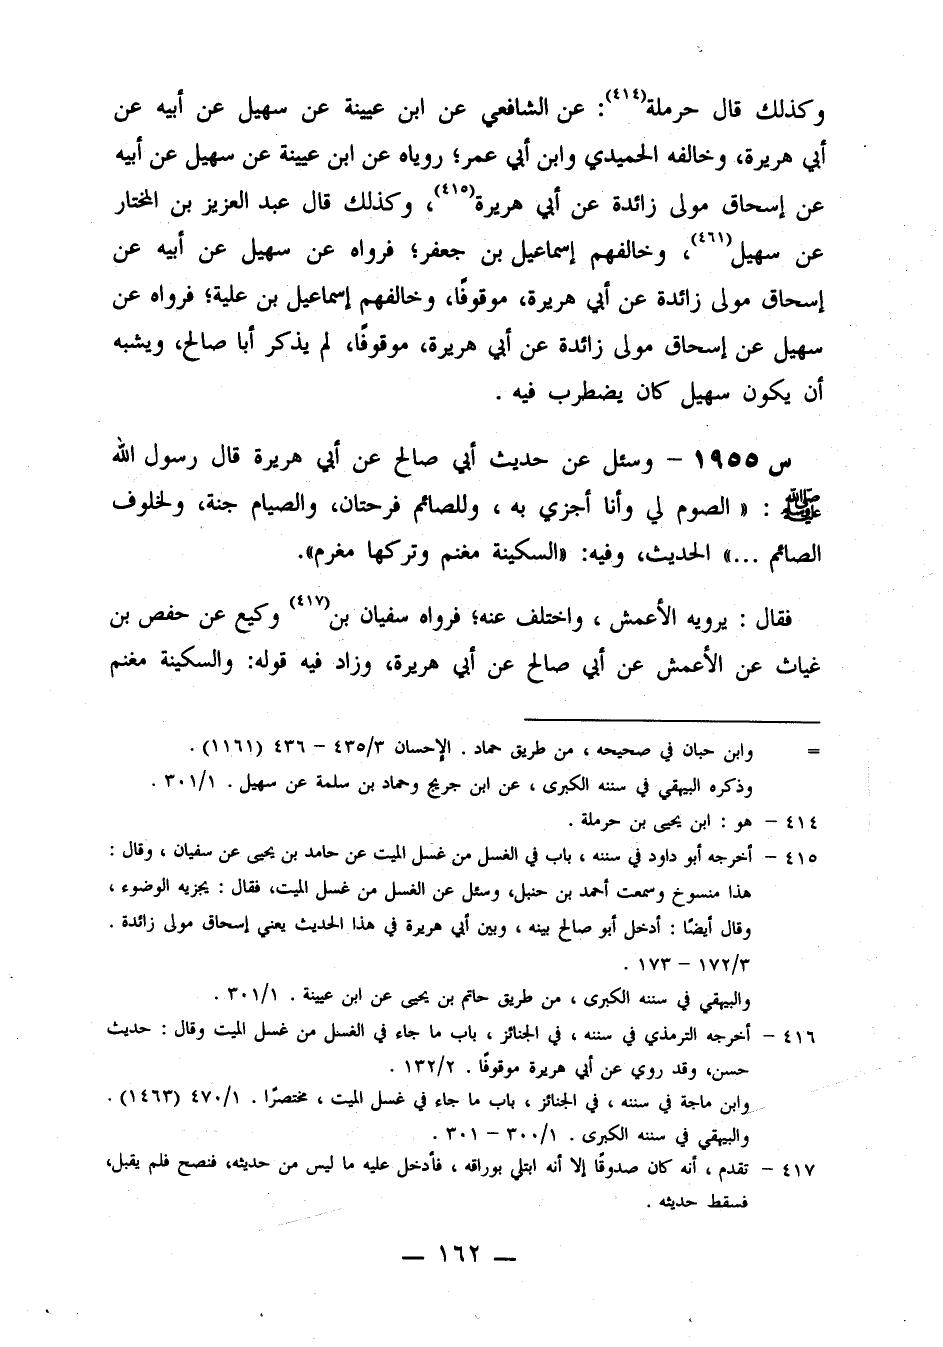 وكذلك قال حرملة(٤١٤): عن الشافعي عن ابن عيينة عن سهيل عن أبيه عن
أبي هريرة، وخالفه الحميدي وابن أبي عمر؛ روياه عن ابن عيينة عن سهيل عن أبيه
عن إسحاق مولى زائدة عن أبي هريرة(٤١٥)، وكذلك قال عبد العزيز بن المختار
عن سهيل(٤٦١)، وخالفهم إسماعيل بن جعفر؛ فرواه عن سهيل عن أبيه عن
إسحاق مولى زائدة عن أبي هريرة، موقوفًا، وخالفهم إسماعيل بن علية؛ فرواه عن
سهيل عن إسحاق مولى زائدة عن أبي هريرة، موقوفًا، لم يذكر أبا صالح، ويشبه
أن يكون سهيل كان يضطرب فيه .
س ١٩٥٥ – وسئل عن حديث أبي صالح عن أبي هريرة قال رسول الله
ﷺ : « الصوم لي وأنا أجزي به ، وللصائم فرحتان، والصيام جنة، ولخلوف
الصائم ...» الحديث، وفيه: «السكينة مغنم وتركها مغرم».
فقال : يرويه الأعمش ، واختلف عنه؛ فرواه سفيان بن(٤١٧) وكيع عن حفص بن
غياث عن الأعمش عن أبي صالح عن أبي هريرة، وزاد فيه قوله: والسكينة مغنم
= وابن حبان في صحيحه ، من طريق حماد . الإحسان ٤٣٥/٣ – ٤٣٦ (١١٦١) .
وذكره البيهقي في سننه الكبرى ، عن ابن جريج وحماد بن سلمة عن سهيل . ٣٠١/١ .
٤١٤ – هو : ابن يحيى بن حرملة .
٤١٥ – أخرجه أبو داود في سننه ، باب في الغسل من غسل الميت عن حامد بن يحيى عن سفيان ، وقال :
هذا منسوخ وسمعت أحمد بن حنبل، وسئل عن الغسل من غسل الميت، فقال : يجزيه الوضوء ،
وقال أيضًا : أدخل أبو صالح بينه ، وبين أبي هريرة في هذا الحديث يعني إسحاق مولى زائدة .
١٧٢/٣ – ١٧٣ .
والبيهقي في سننه الكبرى ، من طريق حاتم بن يحيى عن ابن عيينة . ٣٠١/١ .
٤١٦ – أخرجه الترمذي في سننه ، في الجنائز ، باب ما جاء في الغسل من غسل الميت وقال : حديث
حسن، وقد روي عن أبي هريرة موقوفًا . ١٣٢/٢ .
وابن ماجة في سننه ، في الجنائز ، باب ما جاء في غسل الميت ، مختصرًا . ٤٧٠/١ (١٤٦٣) .
والبيهقي في سننه الكبرى . ٣٠٠/١ – ٣٠١ .
٤١٧ – تقدم ، أنه كان صدوقًا إلا أنه ابتلي بوراقه ، فأدخل عليه ما ليس من حديثه، فنصح فلم يقبل،
فسقط حديثه .
— ١٦٢ —